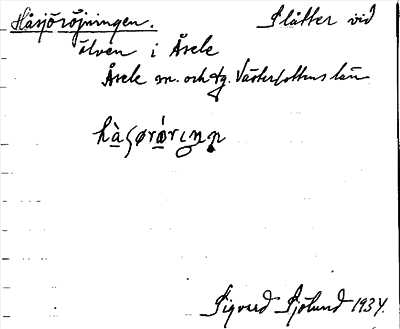 Häsjöröjningen. Slåtter vid
älven i Åsele
Åsele sn. och tg. Västerbottens län
hàʂørǿrıŋn
Sigurd Sjölund 1934.